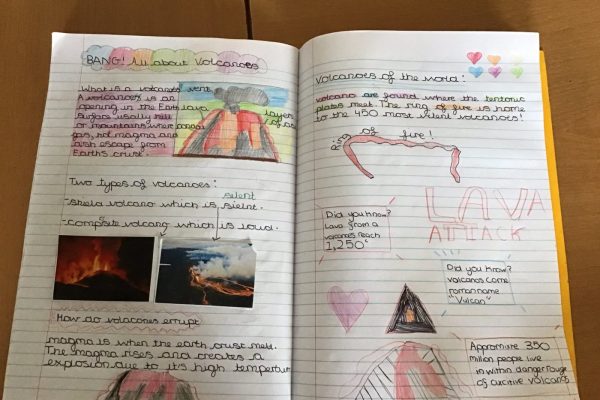 BANG! All about Volcanoes
What is a volcano?
A volcanoes is an
opening in the Earth
Surface usally hill
or mountains where
gas, hot magma and
ash escape from
Earths crust.
vent
lava
layers
of ash
Two types of volcanoes:
silent
-shield volcano which is sielnt.
-composite volcano which is loud.
How do volacones errupt
magma is when the earth crust melt.
The magma rises and creates a
explosion due to it's high temperture
Volcanoes of the world:
volcano are found where the tentonic
plates meet. The ring of fire is home
to the 450 most vilent volcanoes!
Ring of fire!
LAVA
ATTACK
Did you know?
Lava from a
volcanoes reach
1,250°
Did you know?
volcanos come
roman name
"Vulcan"
Approxmite 350
million people live
in within danger rouge
of avcitive volcano